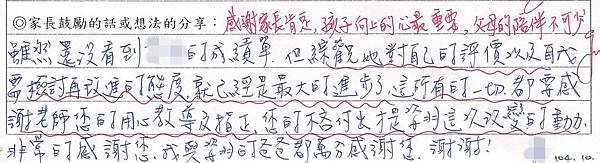 ◎家長鼓勵的話或想法的分享：感謝家長肯定，孩子向上的心最重要，父母的陪伴不可少
雖然還沒看到 的成績單，但綜觀他對自己的評價以及自我
要檢討再改進的態度，就已經是最大的進步了，這所有的一切，都要感
謝老師您的用心教導及指正，您的格付出才是 將這次改變的動力
非常的感謝您，我與 的爸爸都萬分感謝您，謝謝！ 104.10.